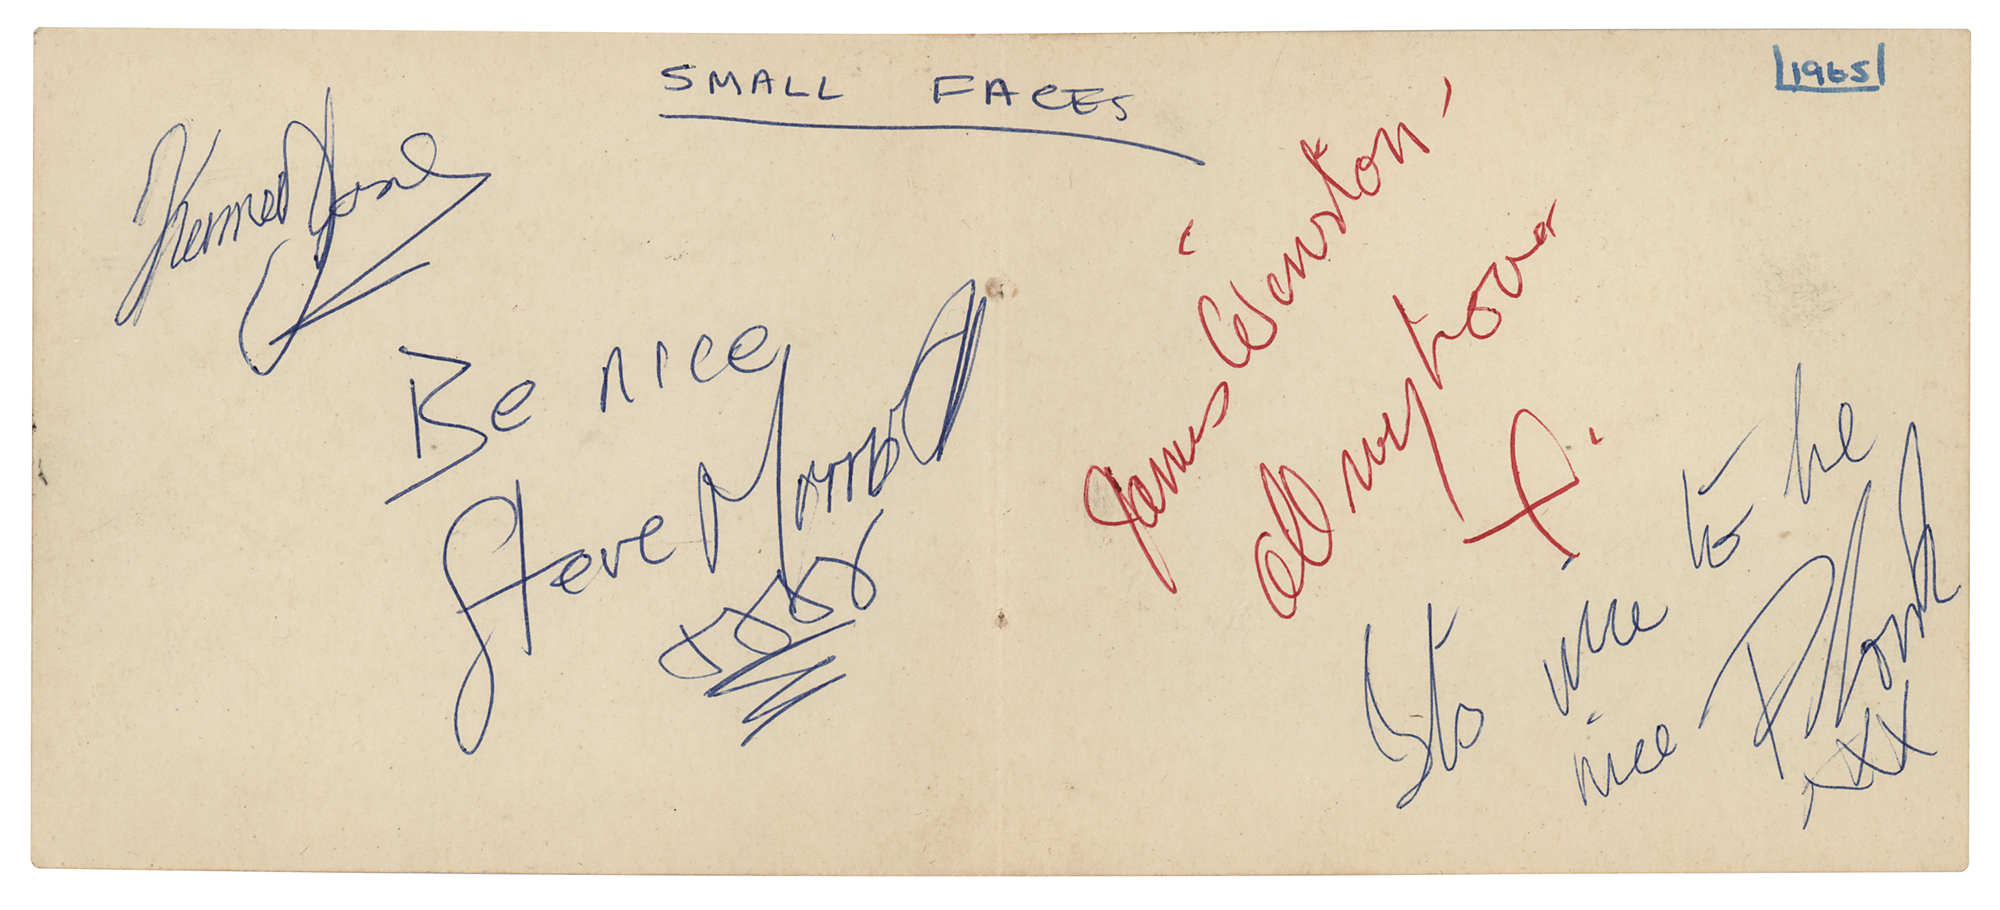 SMALL FACES
1965
Kenney Jones
Be nice
Steve Marriott
xxxx
James 'Winston'
all my love
x
Its nice to be
nice Plonk
xxx